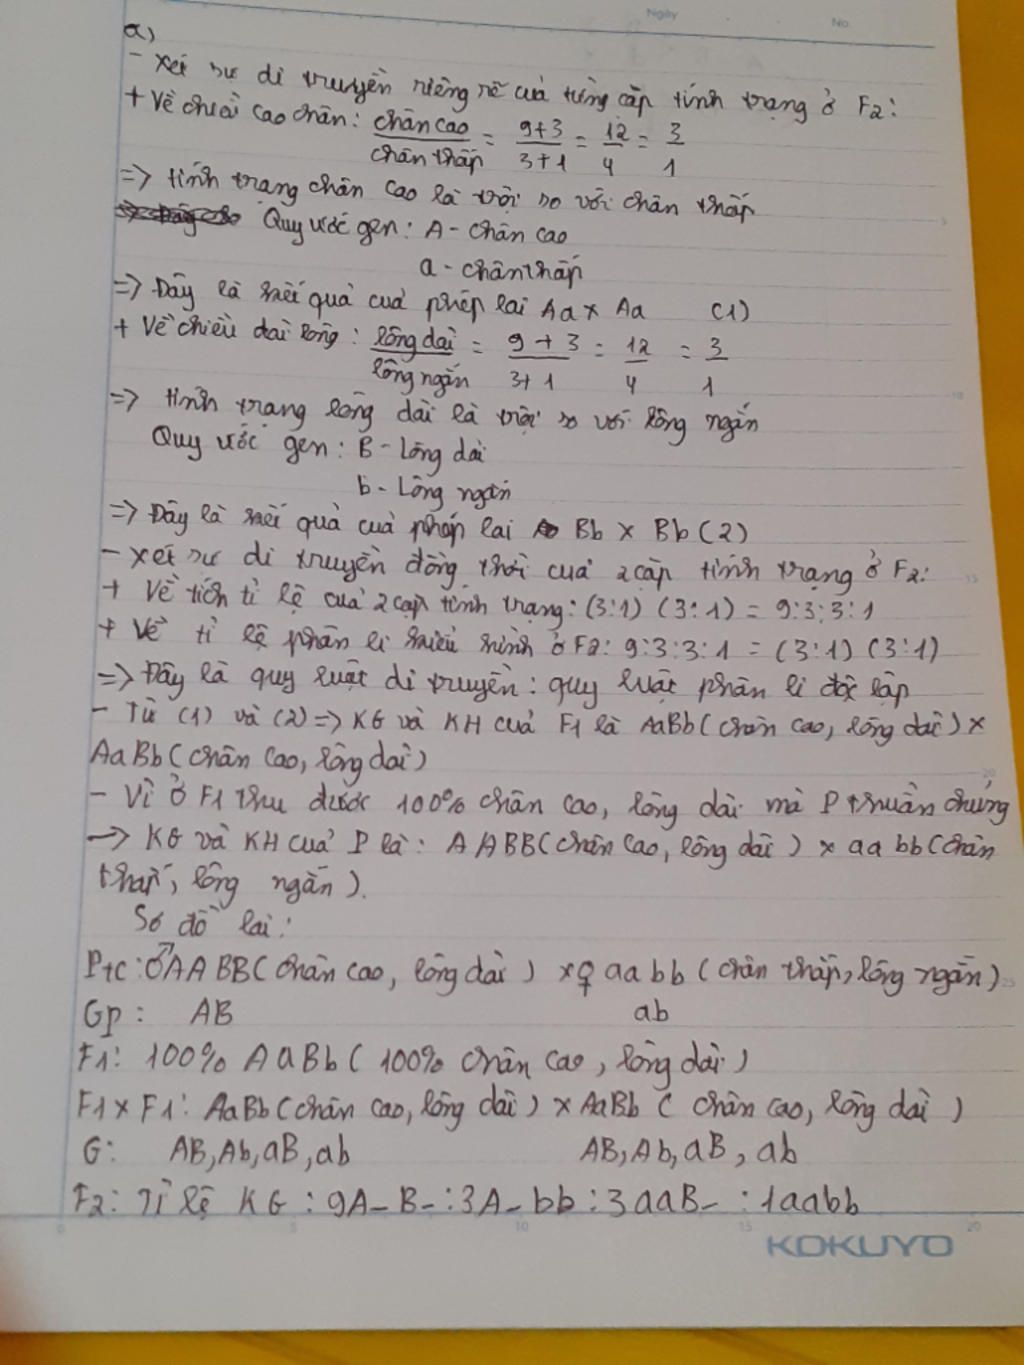 Ngày No.
a)
- Xét sự di truyền riêng rẽ của từng cặp tính trạng ở F2:
+ Về chiều cao chân: chân cao / chân thấp = 9+3 / 3+1 = 12 / 4 = 3 / 1
=> tính trạng chân cao là trội so với chân thấp
Quy ước gen: A - chân cao
a - chân thấp
=> Đây là kết quả của phép lai Aa x Aa (1)
+ Về chiều dài lông: lông dài / lông ngắn = 9 + 3 / 3+1 = 12 / 4 = 3 / 1
=> tính trạng lông dài là trội so với lông ngắn
Quy ước gen: B - Lông dài
b - Lông ngắn
=> Đây là kết quả của phép lai Bb x Bb (2)
- Xét sự di truyền đồng thời của 2 cặp tính trạng ở F2:
+ Về tích tỉ lệ của 2 cặp tính trạng: (3:1) (3:1) = 9:3:3:1
+ Về tỉ lệ phân li kiểu hình ở F2: 9:3:3:1 = (3:1) (3:1)
=> Đây là quy luật di truyền: quy luật phân li độc lập
- Từ (1) và (2) => KG và KH của F1 là AaBb (chân cao, lông dài) x
AaBb (chân cao, lông dài)
- Vì ở F1 thu được 100% chân cao, lông dài mà P thuần chủng
-> KG và KH của P là: AABB (chân cao, lông dài) x aabb (chân
thấp, lông ngắn).
Sơ đồ lai:
Ptc: ♂AABB (chân cao, lông dài) x ♀ aabb (chân thấp, lông ngắn)
Gp: AB ab
F1: 100% AaBb (100% chân cao, lông dài)
F1 x F1: AaBb (chân cao, lông dài) x AaBb (chân cao, lông dài)
G: AB, Ab, aB, ab AB, Ab, aB, ab
F2: Tỉ lệ KG: 9A-B-: 3A-bb: 3aaB-: 1aabb
KOKUYO